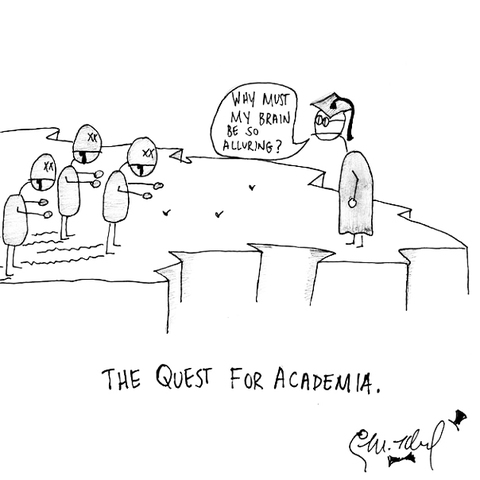 WHY MUST
MY BRAIN
BE SO
ALLURING?
THE QUEST FOR ACADEMIA.